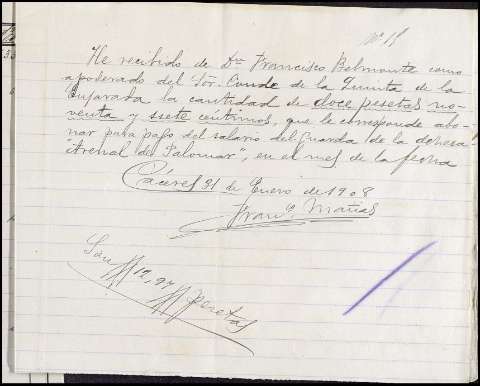 Nº 18
He recibido de Dn Francisco Belmonte como
apoderado del Sor. Conde de la Quinta de la
Enjarada la cantidad de doce pesetas no-
venta y siete centimos, que le corresponde abo-
nar para pago del salario del Guarda de la dehesa
"Arenal del Palomar", en el mes de la fecha
Cáceres 31 de Enero de 1908
Franco. Matias
Son 12,97 pesetas